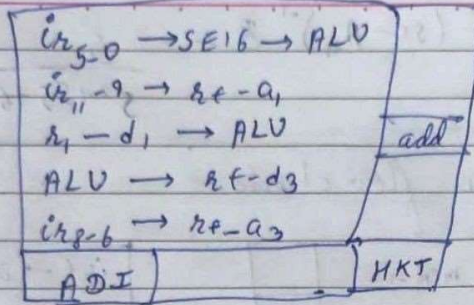 ir5-0 → SE16 → ALU
ir11-9 → rf-a1
r1-d1 → ALU
add
ALU → rf-d3
ir8-6 → rf-a3
ADI
HKT